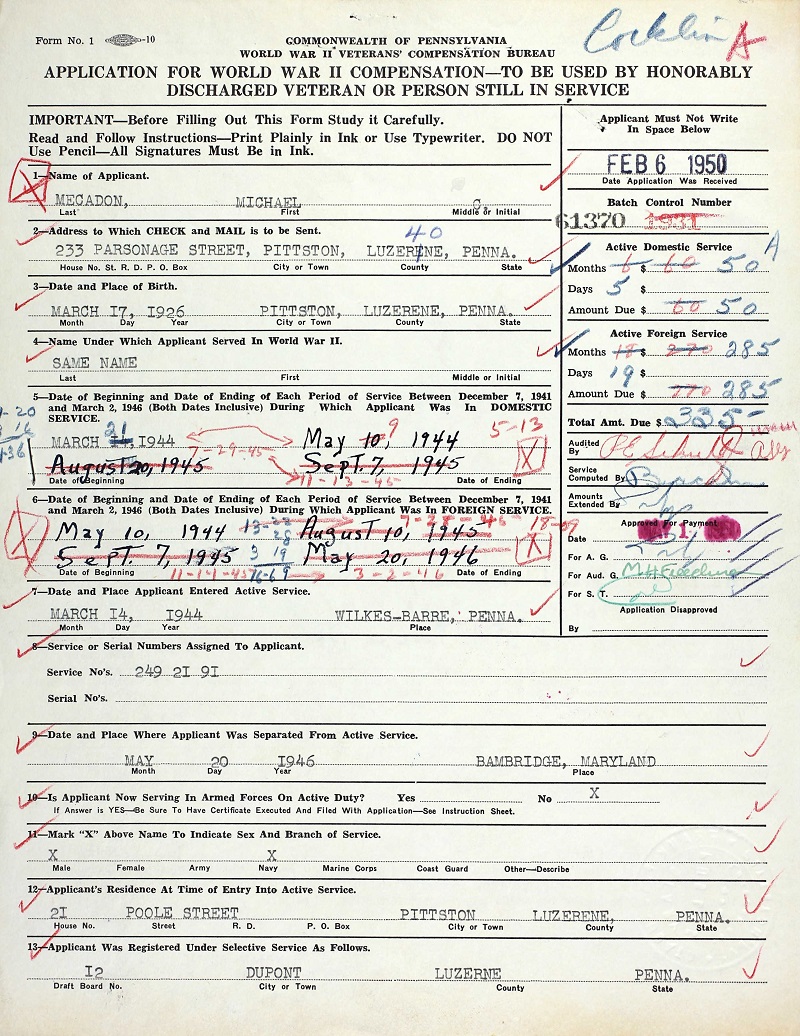 Form No. 1 -10
COMMONWEALTH OF PENNSYLVANIA
WORLD WAR II VETERANS' COMPENSATION BUREAU
APPLICATION FOR WORLD WAR II COMPENSATION—TO BE USED BY HONORABLY
DISCHARGED VETERAN OR PERSON STILL IN SERVICE
IMPORTANT—Before Filling Out This Form Study it Carefully.
Read and Follow Instructions—Print Plainly in Ink or Use Typewriter. DO NOT
Use Pencil—All Signatures Must Be in Ink.
Applicant Must Not Write
In Space Below
FEB 6 1950
Date Application Was Received
Batch Control Number
61370 1931
1—Name of Applicant.
MECADON, MICHAEL C.
Last First Middle or Initial
2—Address to Which CHECK and MAIL is to be Sent. 40
233 PARSONAGE STREET, PITTSTON, LUZERENE, PENNA.
House No. St. R. D. P. O. Box City or Town County State
3—Date and Place of Birth.
MARCH I7, I926 PITTSTON, LUZERENE, PENNA.
Month Day Year City or Town County State
4—Name Under Which Applicant Served In World War II.
SAME NAME
Last First Middle or Initial
Active Domestic Service A
Months 6 $ 60 50
Days 5
Amount Due $ 60 50
Active Foreign Service
Months 18 $ 270 285
Days 19
Amount Due $ 270 285
Total Amt. Due $ 335
5—Date of Beginning and Date of Ending of Each Period of Service Between December 7, 1941
and March 2, 1946 (Both Dates Inclusive) During Which Applicant Was In DOMESTIC
SERVICE. 5-13
MARCH 21 I4, I944 May 10, 9 1944
August 20, 1945 Sept. 7, 1945
Date of Beginning 11-13-45 Date of Ending
6—Date of Beginning and Date of Ending of Each Period of Service Between December 7, 1941
and March 2, 1946 (Both Dates Inclusive) During Which Applicant Was In FOREIGN SERVICE.
May 10, 1944 August 10, 1945
Sept. 7, 1945 3 19 May 20, 1946
Date of Beginning 11-14-45 3-2-46 Date of Ending
Audited
By
Service
Computed By
Amounts
Extended By
Approved For Payment
Date
For A. G.
For Aud. G.
For S. T.
Application Disapproved
By
7—Date and Place Applicant Entered Active Service.
MARCH I4, I944 WILKES-BARRE, PENNA.
Month Day Year Place
8—Service or Serial Numbers Assigned To Applicant.
Service No's. 249 2I 9I
Serial No's.
9—Date and Place Where Applicant Was Separated From Active Service.
MAY 20 I946 BAMBRIDGE, MARYLAND
Month Day Year Place
10—Is Applicant Now Serving In Armed Forces On Active Duty? Yes No X
If Answer is YES—Be Sure To Have Certificate Executed And Filed With Application—See Instruction Sheet.
11—Mark "X" Above Name To Indicate Sex and Branch of Service.
X X
Male Female Army Navy Marine Corps Coast Guard Other—Describe
12—Applicant's Residence At Time of Entry Into Active Service.
2I POOLE STREET PITTSTON LUZERENE, PENNA.
House No. Street R. D. P. O. Box City or Town County State
13—Applicant Was Registered Under Selective Service As Follows.
I2 DUPONT LUZERNE PENNA.
Draft Board No. City or Town County State